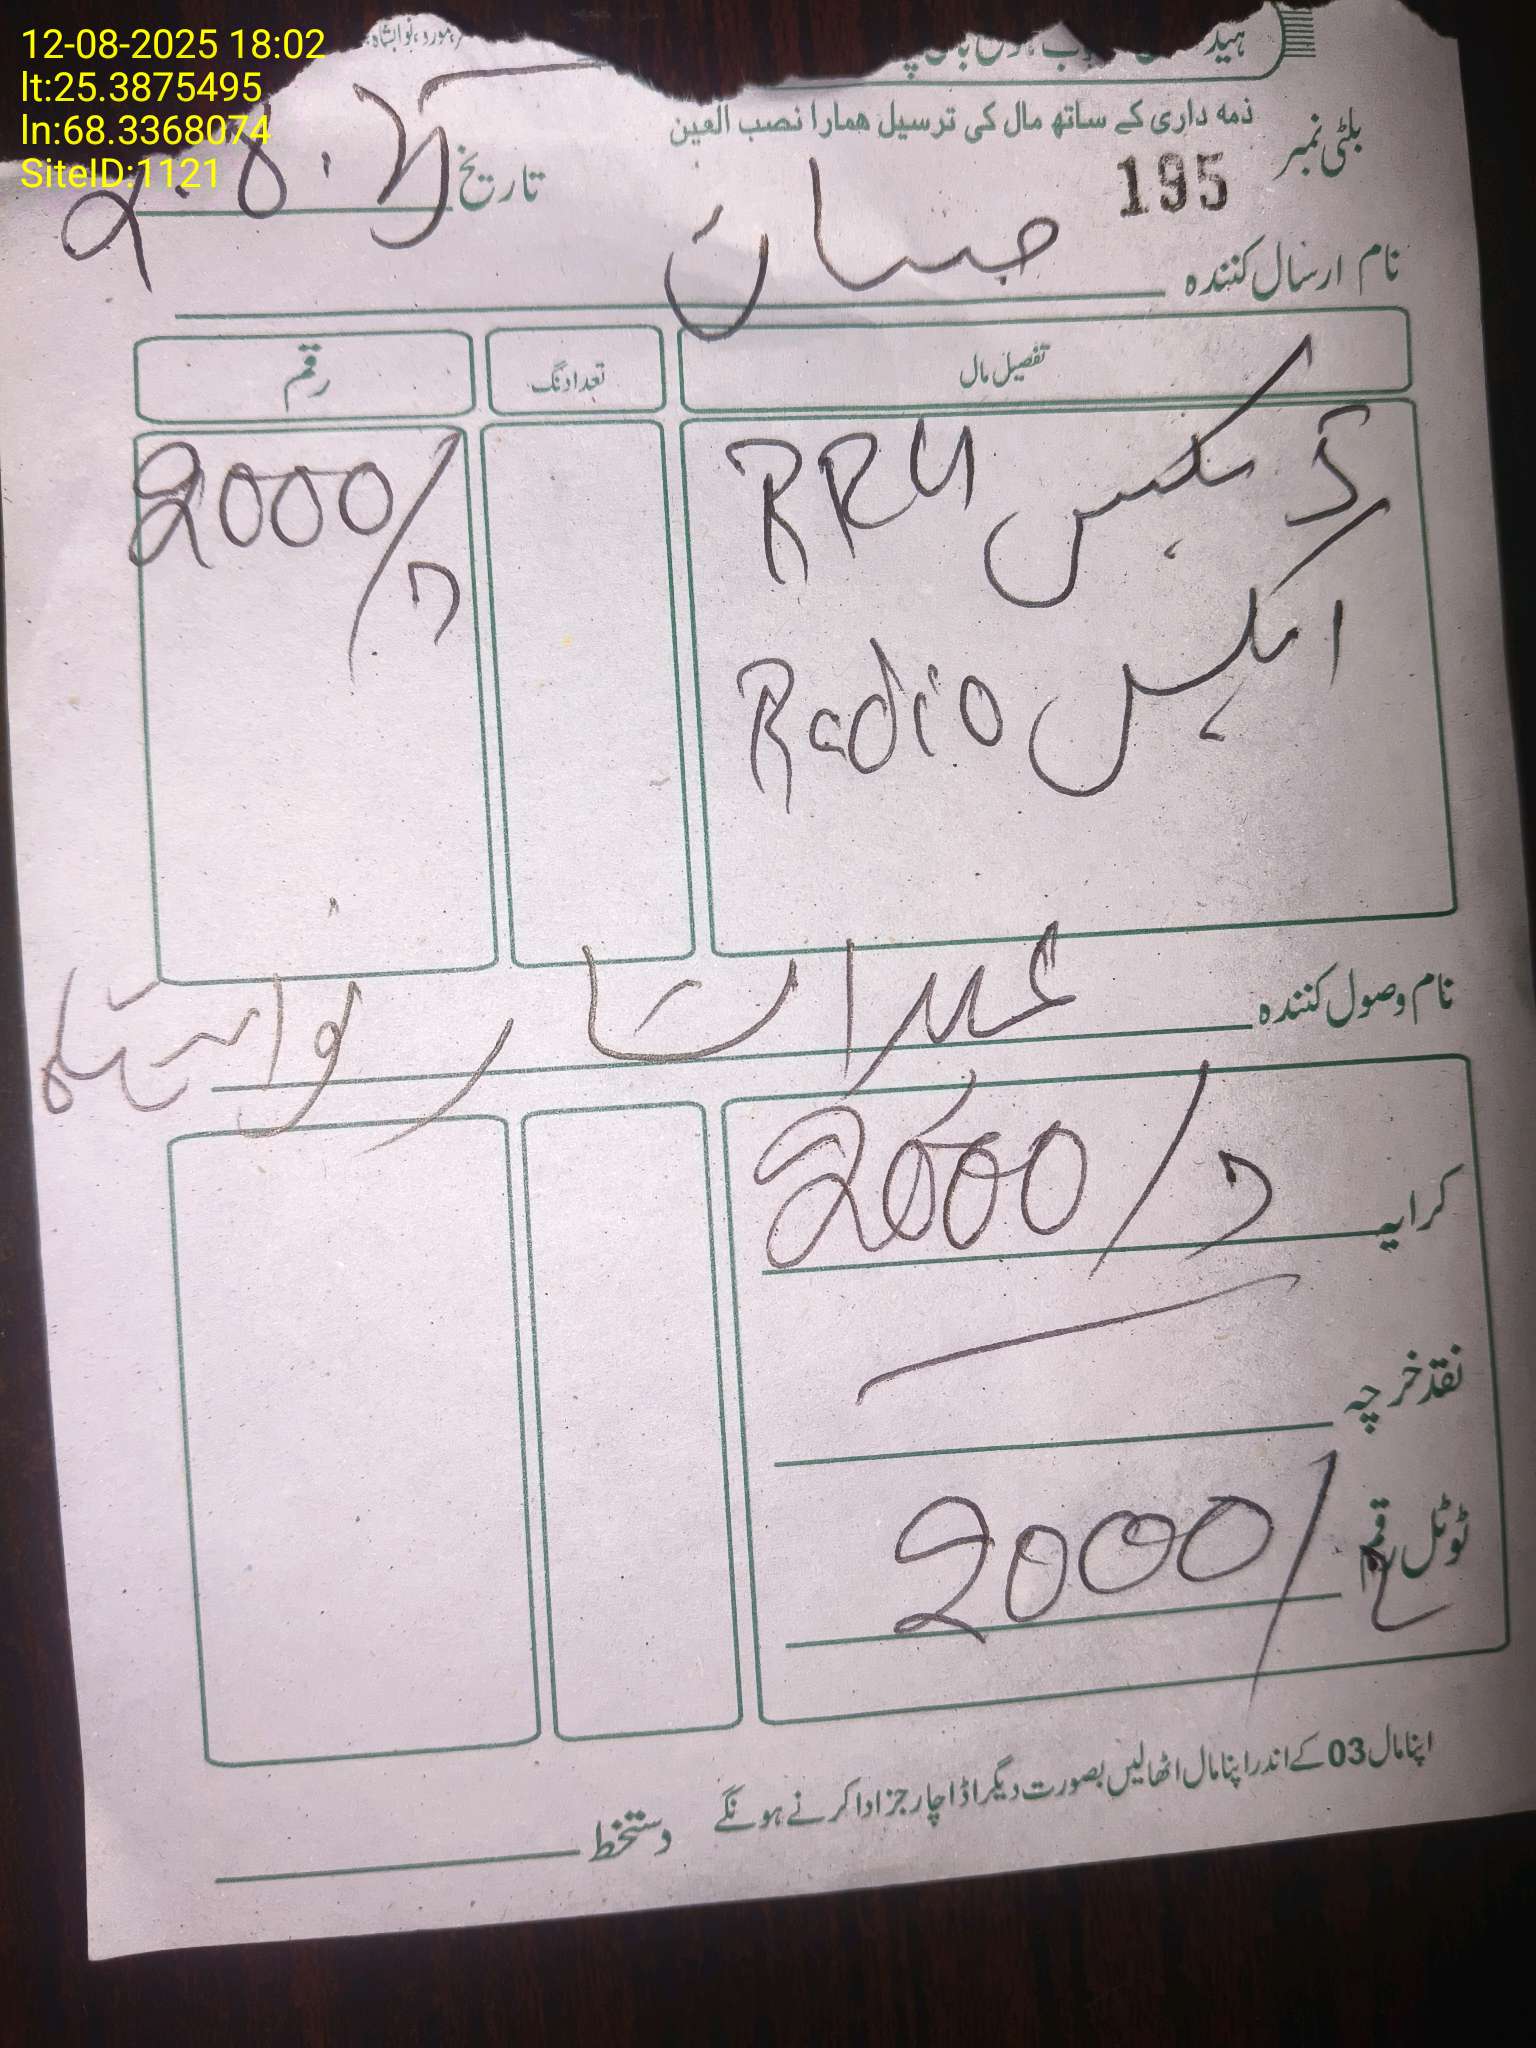 12-08-2025 18:02
lt:25.3875495
ln:68.3368074
SiteID:1121
مورو، نوابشاہ
ذمہ داری کے ساتھ مال کی ترسیل ھمارا نصب العین
بلٹی نمبر 195 تاریخ
نام ارسال کنندہ حسان
تفصیل مال تعداد نگ رقم
RRU 2000/
Radio
نام وصول کنندہ عبدالستار نوابشاہ
کرایہ 2000/
نقد خرچہ
ٹوٹل رقم 2000/
اپنا مال 03 کے اندر اپنا مال اٹھالیں بصورت دیگر اڈا چارجز ادا کرنے ہونگے
دستخط